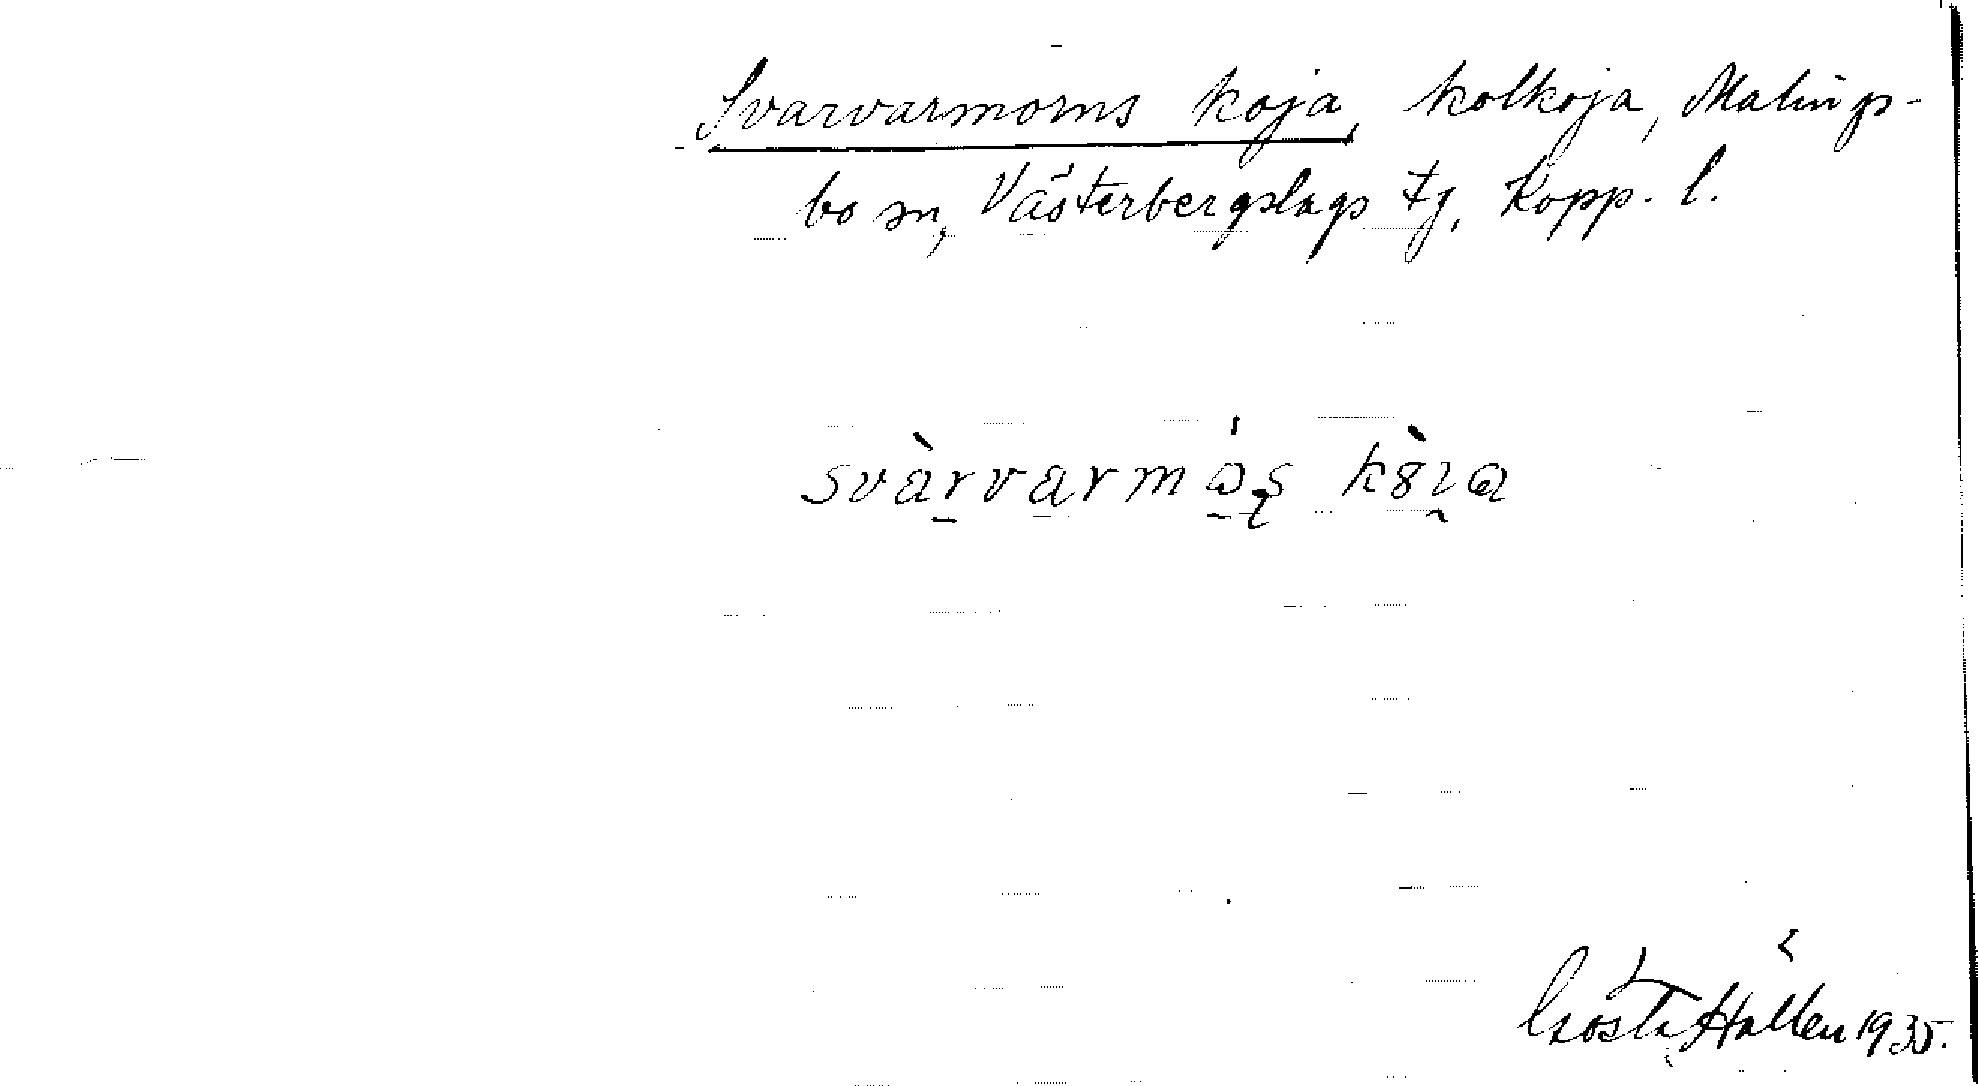 Svarvarmorns koja, kolkoja, Malings-
bo sn, Västerbergslags tg, Kopp. l.
svàrvarmɷ́ʂ kȣ̀ɩa
Gösta Hallén 1935.